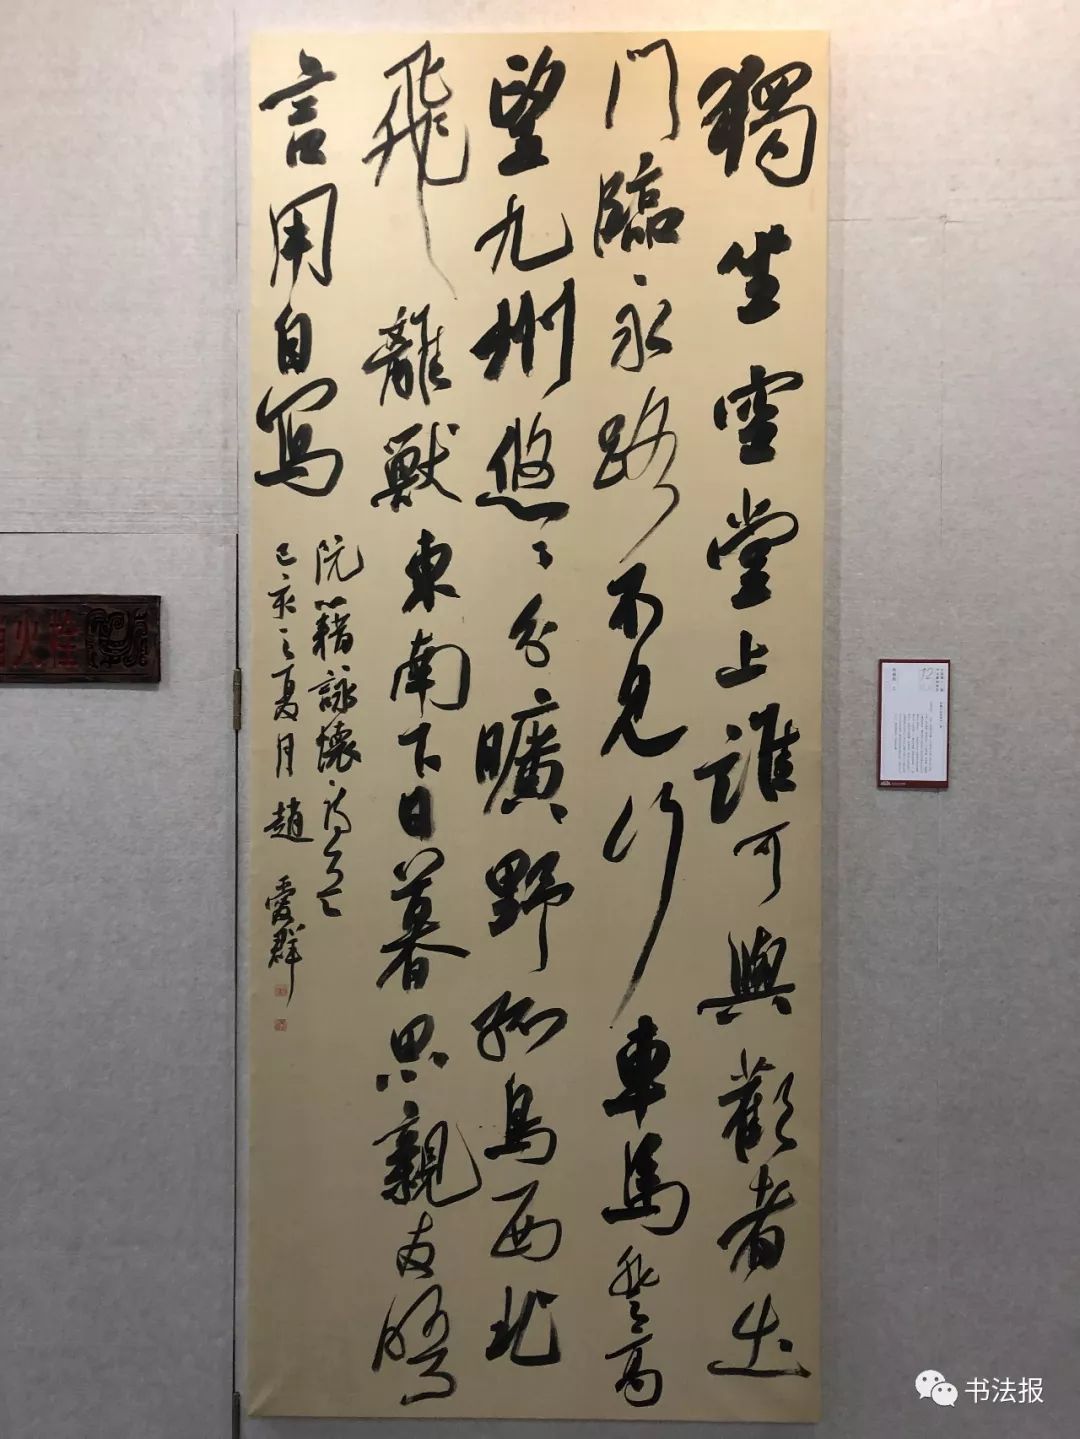 獨坐空堂上誰可與歡者出
門臨永路不見行車馬登高
望九州悠々分曠野孤鳥西北
飛離獸東南下日暮思親友晤
言用自寫
阮籍詠懷詩
己亥之夏月趙愛群
12
书法报